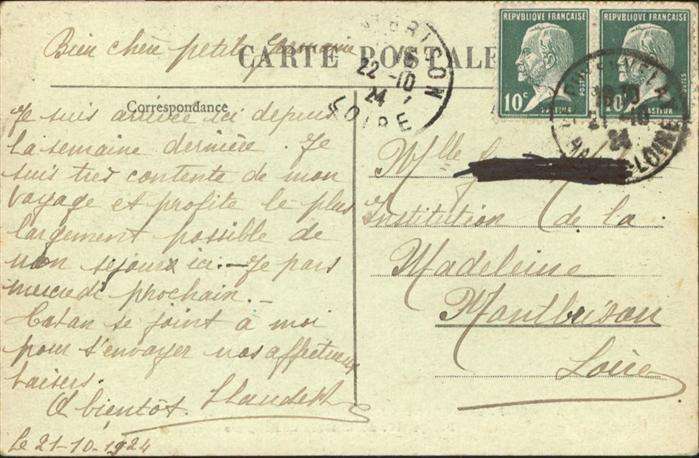 Bien chère petite Germaine
CARTE POSTALE
MONTBRISON
22-10
24
LOIRE
REPVBLIQVE FRANÇAISE
10c
PASTEUR
REPVBLIQVE FRANÇAISE
10c
PASTEUR
LE PUY-EN-VELAY
24
HAUTE-LOIRE
Correspondance
Je suis arrivée ici depuis
la semaine dernière. Je
suis très contente de mon
voyage et profite le plus
largement possible de
mon séjour ici. - Je pars
mercredi prochain. -
se joint à moi
pour t'envoyer nos affectueux
baisers.
A bientôt.
Le 21-10-1924
Mlle
Institution de la
Madeleine
Montbrison
Loire